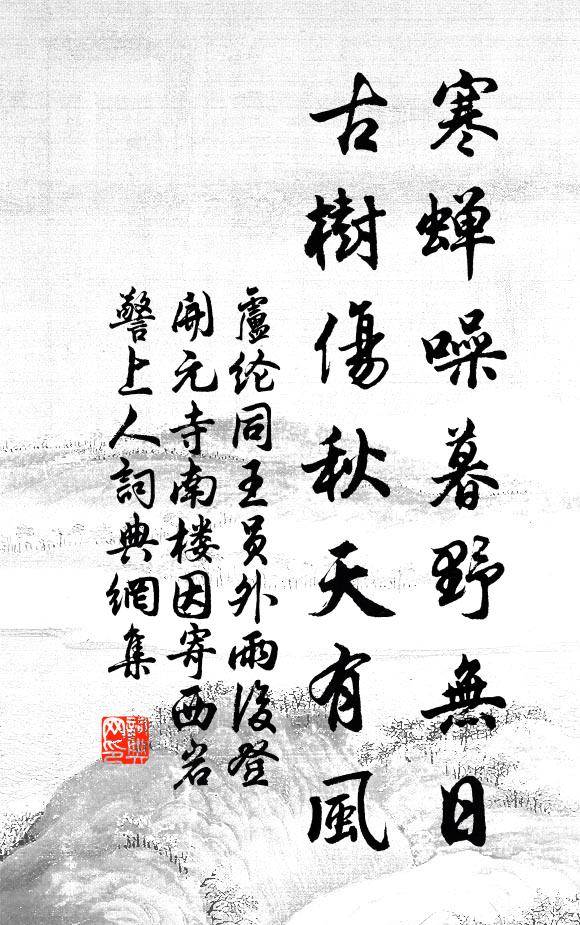 寒蝉噪暮野無日
古樹傷秋天有風
盧纶同王員外雨後登
開元寺南楼因寄西岩
警上人詞典網集
詞典网印